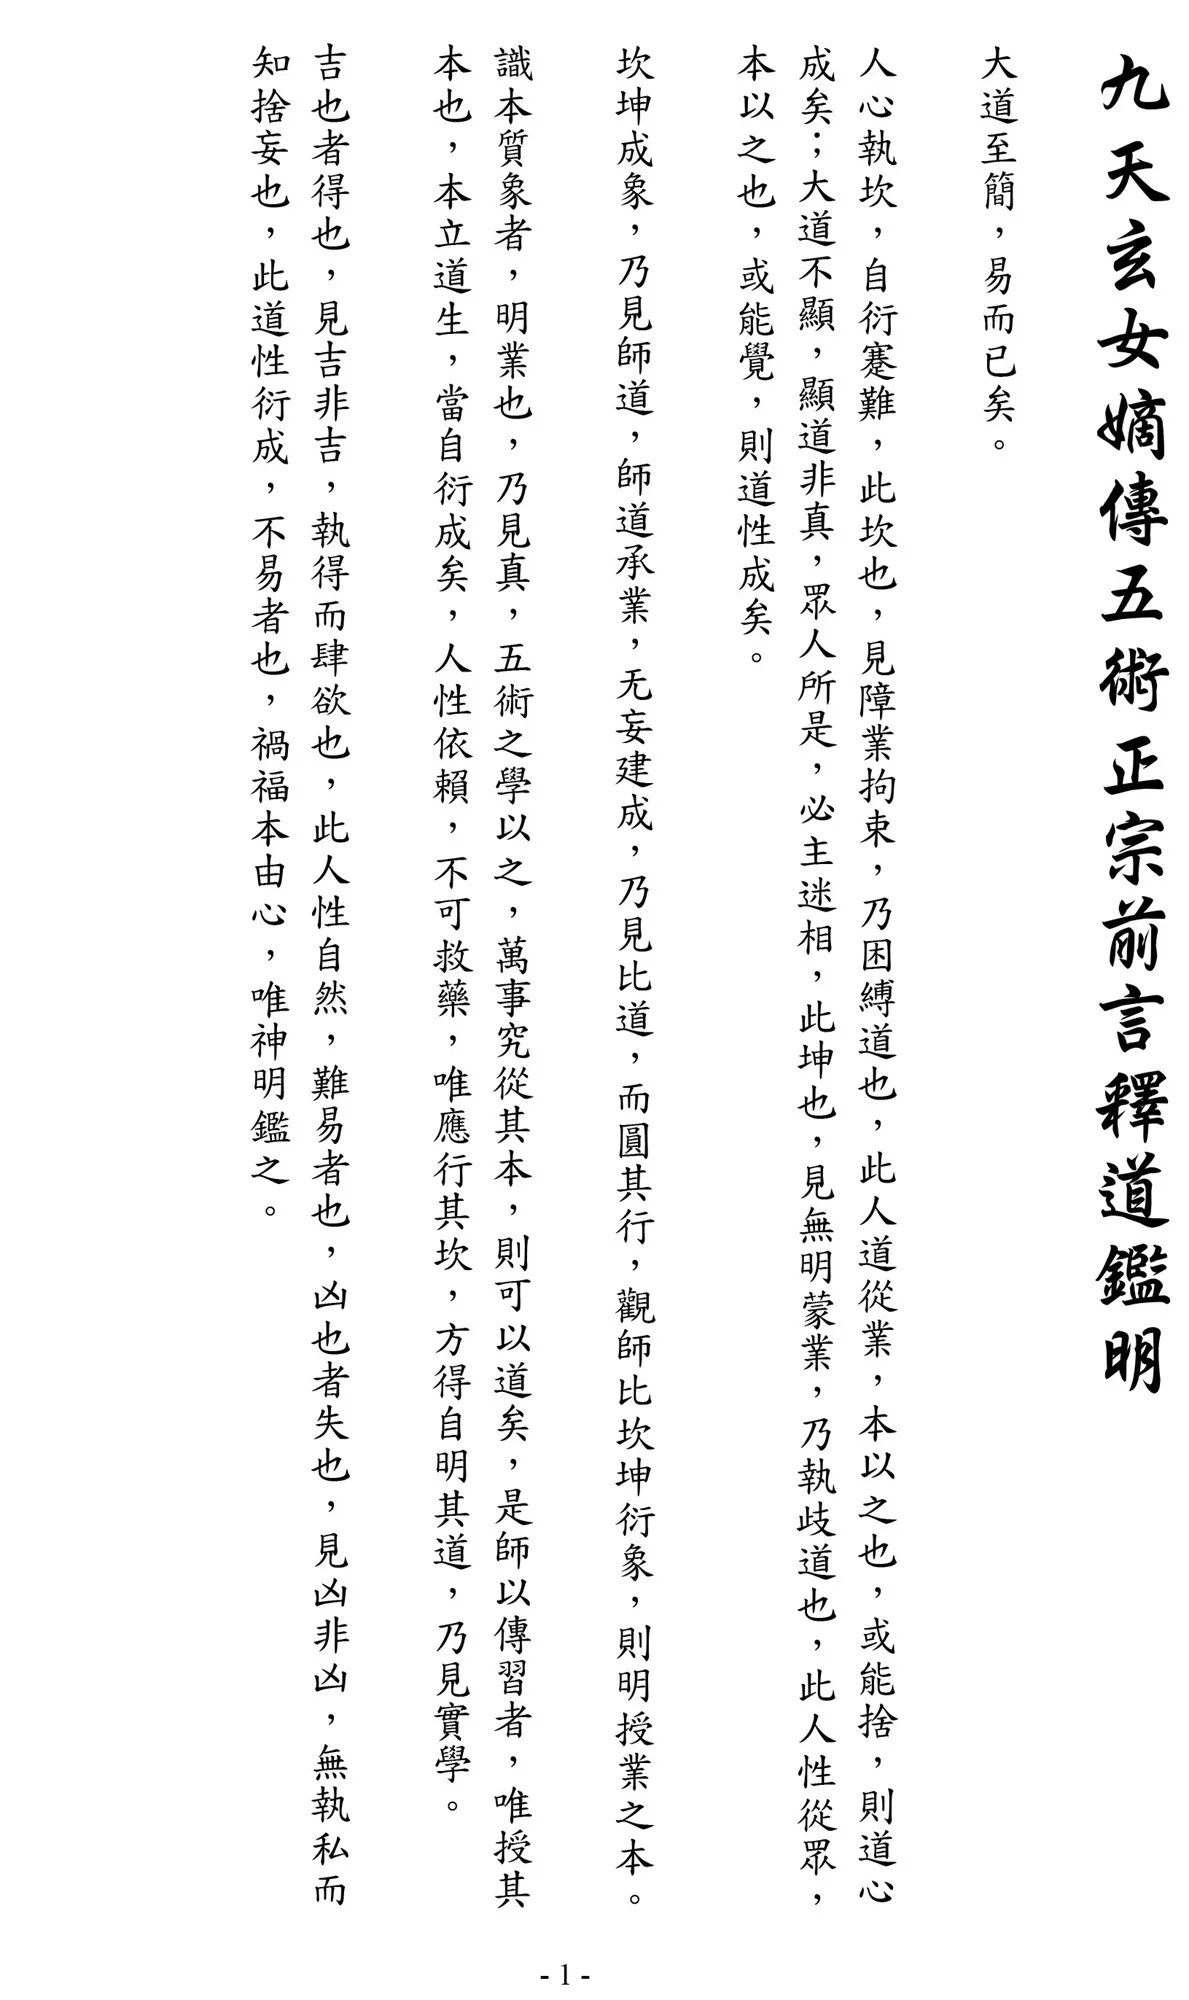 九天玄女嫡傳五術正宗前言釋道鑑明
大道至簡，易而已矣。
人心執坎，自衍蹇難，此坎也，見障業拘束，乃困縛道也，此人道從業，本以之也，或能捨，則道心
成矣；大道不顯，顯道非真，眾人所是，必主迷相，此坤也，見無明蒙業，乃執歧道也，此人性從眾，
本以之也，或能覺，則道性成矣。
坎坤成象，乃見師道，師道承業，无妄建成，乃見比道，而圓其行，觀師比坎坤衍象，則明授業之本。
識本質象者，明業也，乃見真，五術之學以之，萬事究從其本，則可以道矣，是師以傳習者，唯授其
本也，本立道生，當自衍成矣，人性依賴，不可救藥，唯應行其坎，方得自明其道，乃見實學。
吉也者得也，見吉非吉，執得而肆欲也，此人性自然，難易者也，凶也者失也，見凶非凶，無執私而
知捨妄也，此道性衍成，不易者也，禍福本由心，唯神明鑑之。
- 1 -